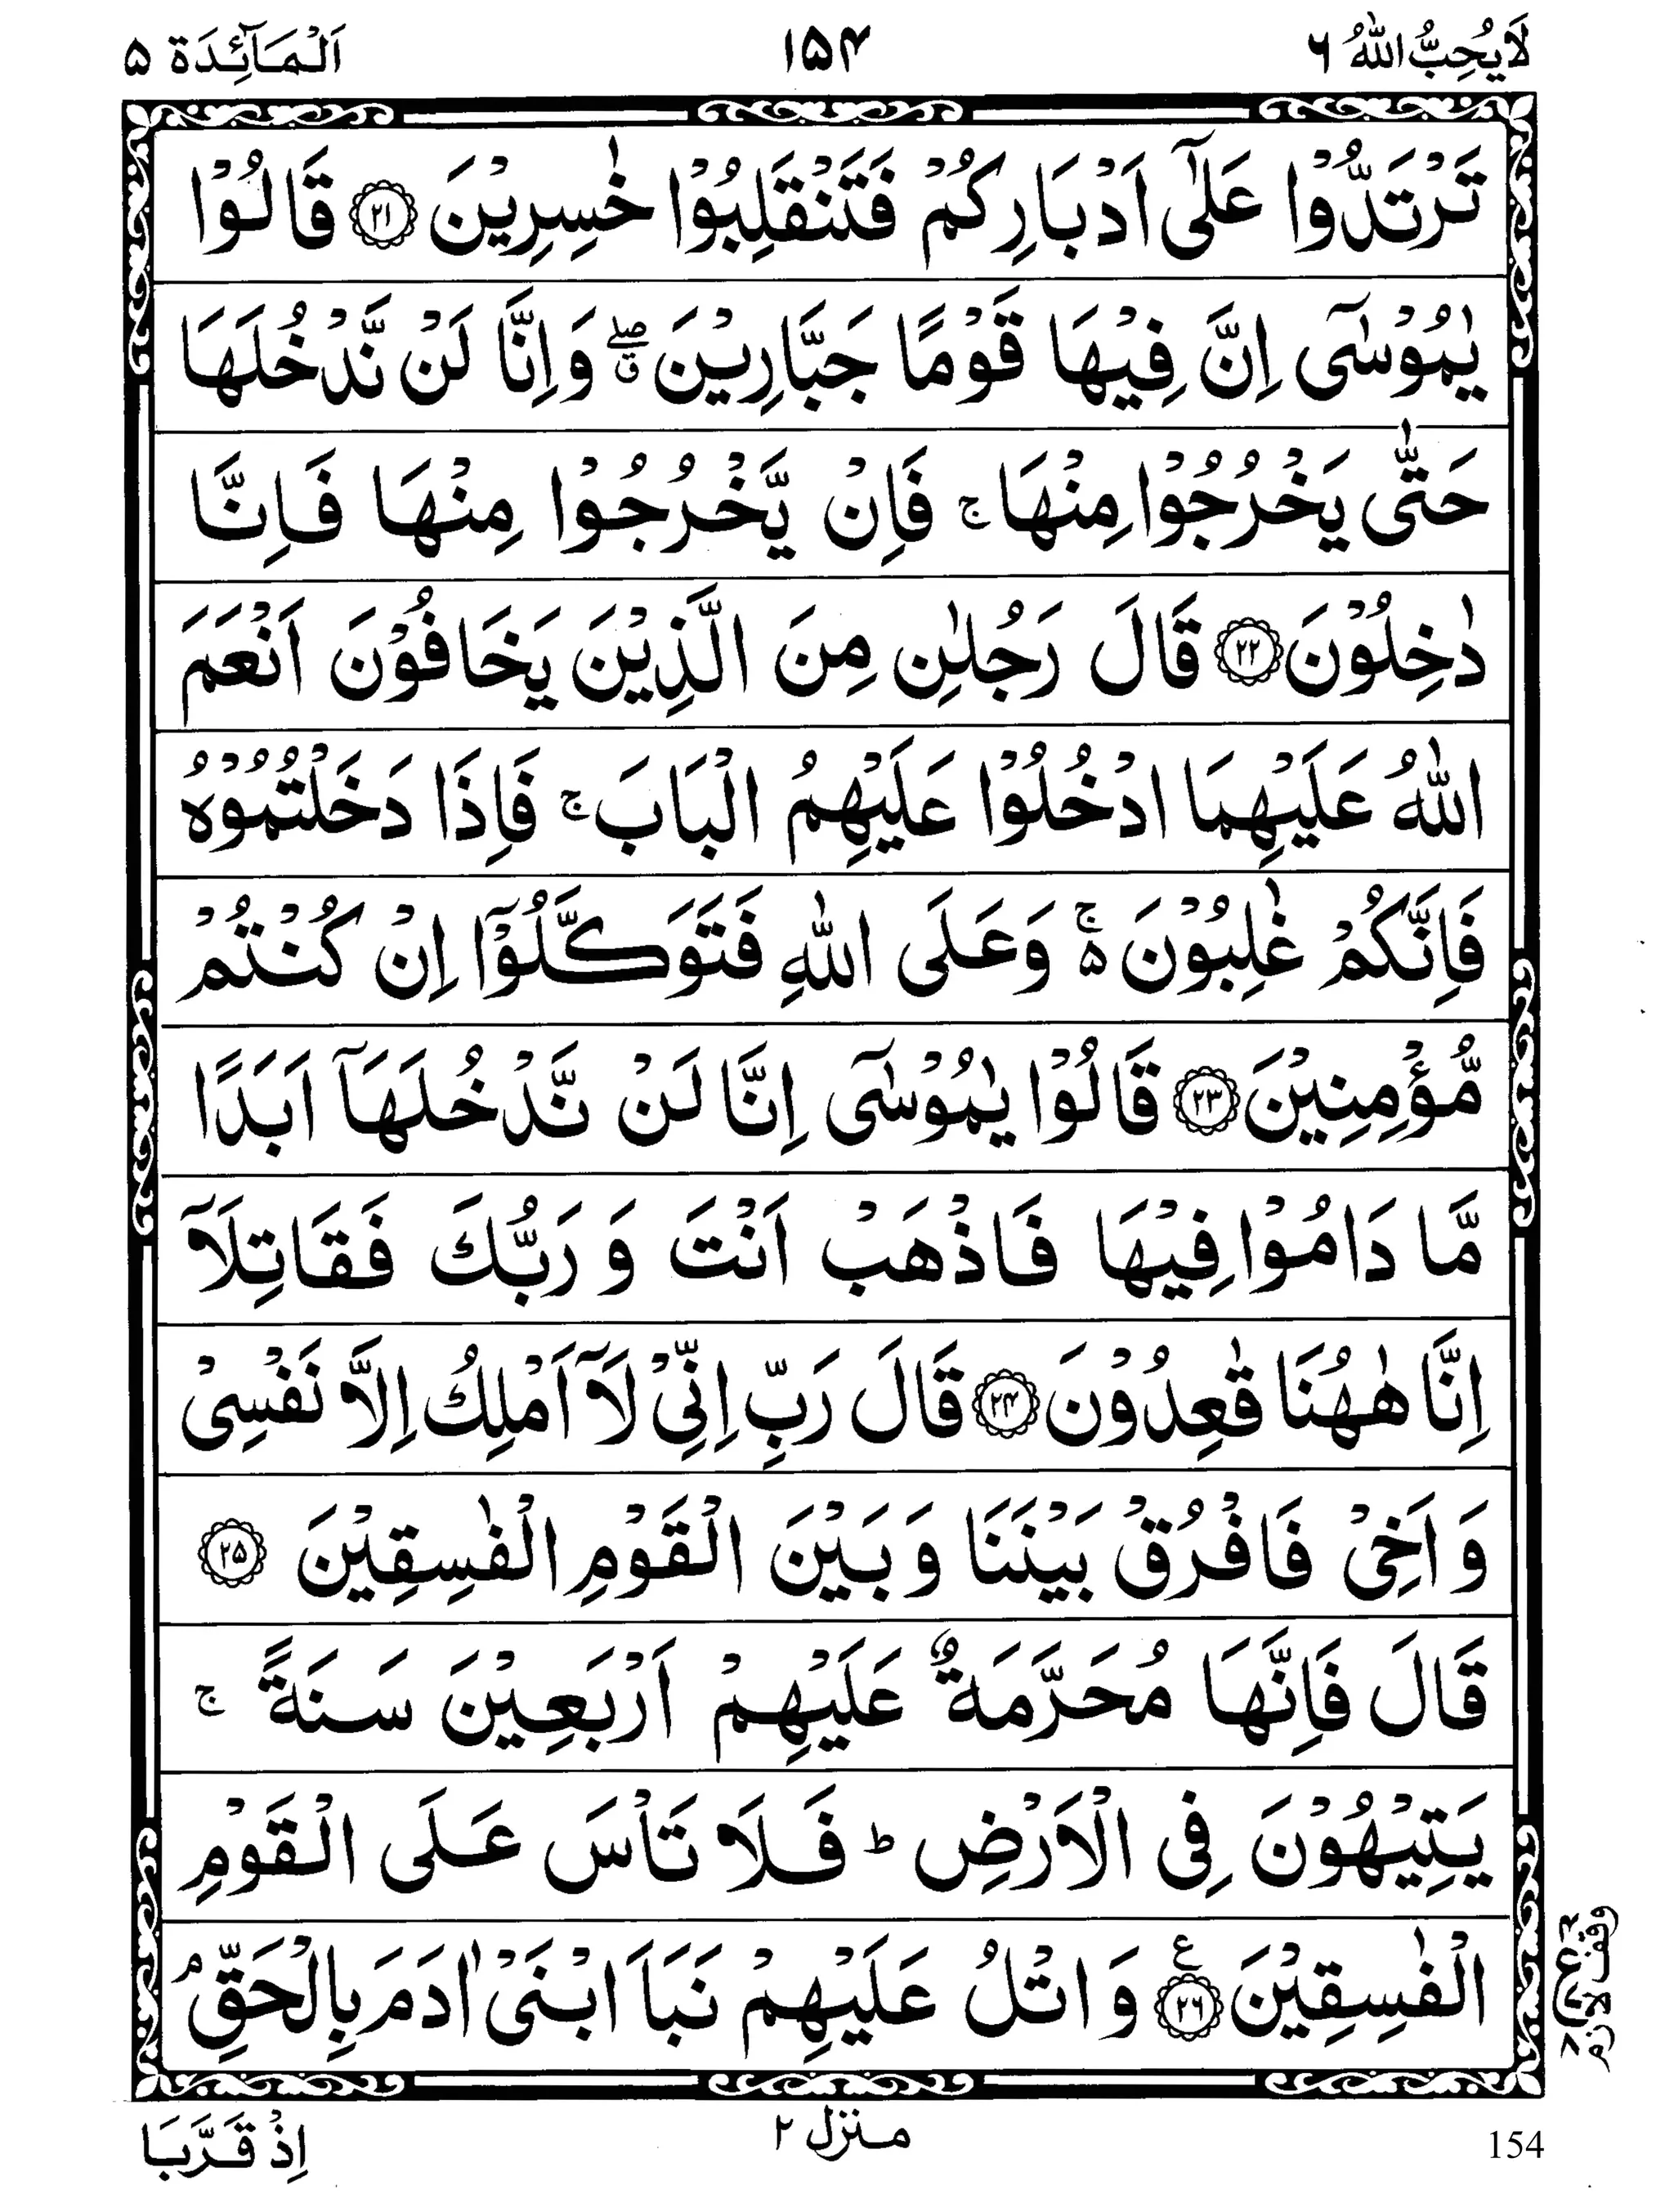 لَا يُحِبُّ اللّٰهُ ٦ ١٥۴ اَلْمَآئِدَة ۵
تَرْتَدُّوْا عَلٰٓى اَدْبَارِكُمْ فَتَنْقَلِبُوْا خٰسِرِيْنَ ﴿۲۱﴾ قَالُوْا
يٰمُوْسٰٓى اِنَّ فِيْهَا قَوْمًا جَبَّارِيْنَ ۖق وَاِنَّا لَنْ نَّدْخُلَهَا
حَتّٰى يَخْرُجُوْا مِنْهَا ۚ فَاِنْ يَّخْرُجُوْا مِنْهَا فَاِنَّا
دٰخِلُوْنَ ﴿۲۲﴾ قَالَ رَجُلٰنِ مِنَ الَّذِيْنَ يَخَافُوْنَ اَنْعَمَ
اللّٰهُ عَلَيْهِمَا ادْخُلُوْا عَلَيْهِمُ الْبَابَ ۚ فَاِذَا دَخَلْتُمُوْهُ
فَاِنَّكُمْ غٰلِبُوْنَ ۵ۚ وَعَلَى اللّٰهِ فَتَوَكَّلُوْٓا اِنْ كُنْتُمْ
مُّؤْمِنِيْنَ ﴿۲۳﴾ قَالُوْا يٰمُوْسٰٓى اِنَّا لَنْ نَّدْخُلَهَآ اَبَدًا
مَّا دَامُوْا فِيْهَا فَاذْهَبْ اَنْتَ وَ رَبُّكَ فَقَاتِلَآ
اِنَّا هٰهُنَا قٰعِدُوْنَ ﴿۲۴﴾ قَالَ رَبِّ اِنِّىْ لَآ اَمْلِكُ اِلَّا نَفْسِىْ
وَ اَخِىْ فَافْرُقْ بَيْنَنَا وَ بَيْنَ الْقَوْمِ الْفٰسِقِيْنَ ﴿۲۵﴾
قَالَ فَاِنَّهَا مُحَرَّمَةٌ عَلَيْهِمْ اَرْبَعِيْنَ سَنَةً ۚ
يَتِيْهُوْنَ فِى الْاَرْضِ ؕ فَلَا تَاْسَ عَلَى الْقَوْمِ
الْفٰسِقِيْنَ ﴿۲۶﴾ ع وَ اتْلُ عَلَيْهِمْ نَبَاَ ابْنَىْ اٰدَمَ بِالْحَقِّ ۘ
وقف لازم
اِذْ قَرَّبَا منزل ۲ 154